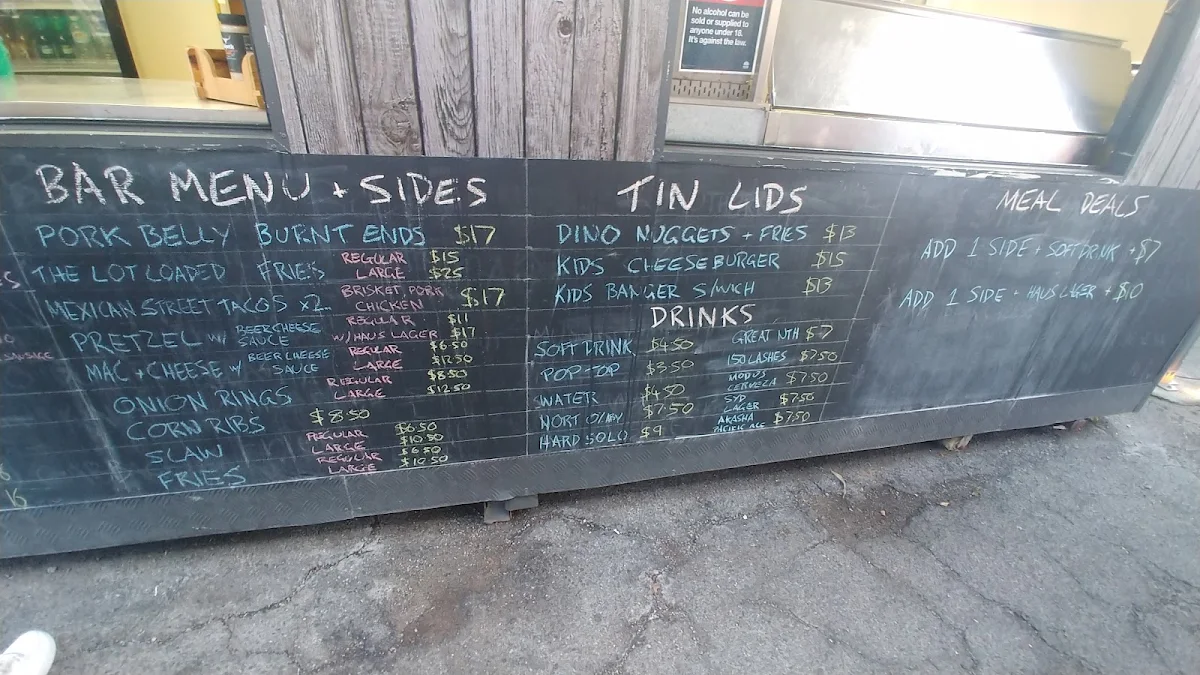 No alcohol can be
sold or supplied to
anyone under 18.
It's against the law.
BAR MENU + SIDES
PORK BELLY BURNT ENDS $17
THE LOT LOADED FRIES REGULAR $15
LARGE $25
MEXICAN STREET TACOS x2 BRISKET PORK
CHICKEN $17
PRETZEL W/ BEER CHEESE SAUCE REGULAR $11
W/HAUS LAGER $17
MAC + CHEESE W/ BEER CHEESE SAUCE REGULAR $6.50
LARGE $12.50
ONION RINGS REGULAR $8.50
LARGE $12.50
CORN RIBS $8.50
SLAW REGULAR $6.50
LARGE $10.50
FRIES REGULAR $6.50
LARGE $10.50
TIN LIDS
DINO NUGGETS + FRIES $13
KIDS CHEESEBURGER $15
KIDS BANGER S/WICH $13
DRINKS
SOFT DRINK $4.50
POP-TOP $3.50
WATER $4.50
$7.50
HARD SOLO $9
GREAT NTH $7
150 LASHES $7.50
MODUS
CERVEZA $7.50
SYD
LAGER $7.50
AKASHA
PACIFIC ALE $7.50
MEAL DEALS
ADD 1 SIDE + SOFT DRINK +$7
ADD 1 SIDE + HAUS LAGER +$10
16